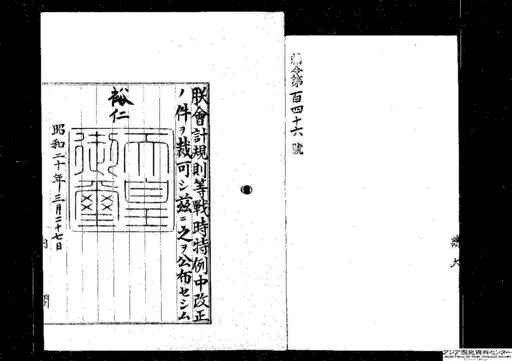 勅令第百四十六號
朕會計規則等戰時特例中改正
ノ件ヲ裁可シ茲ニ之ヲ公布セシム
裕仁
天皇御璽
昭和二十年三月二十七日
内閣
アジア歴史資料センター